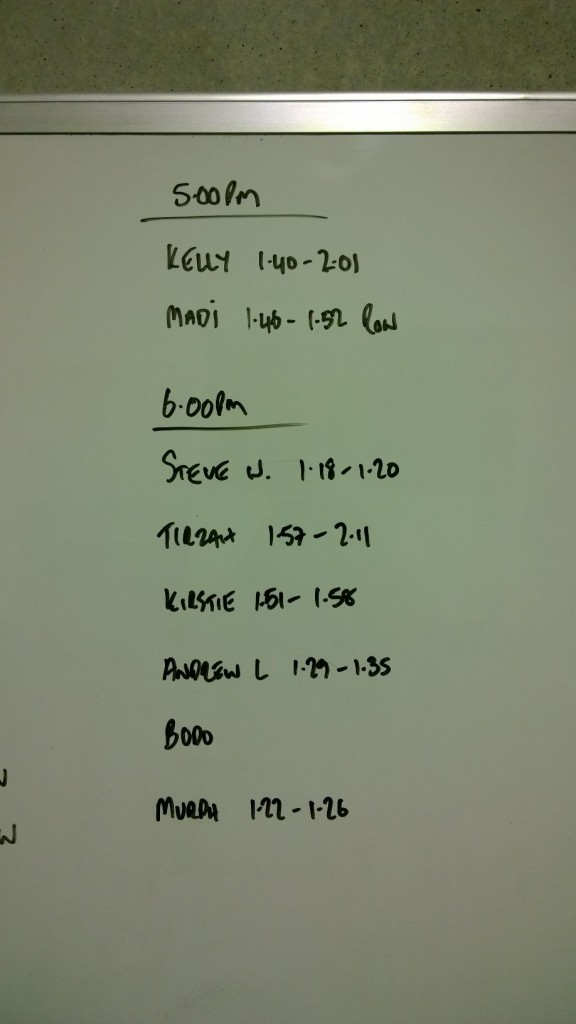 5.00pm
KELLY 1.40-2.01
MADi 1.46-1.52 Row
6.00pm
STEVE W. 1.18-1.20
TIRZAH 1.57-2.11
KIRSTIE 1.51-1.58
ANDREW L 1.29-1.35
BODO
MURPH 1.22-1.26
W